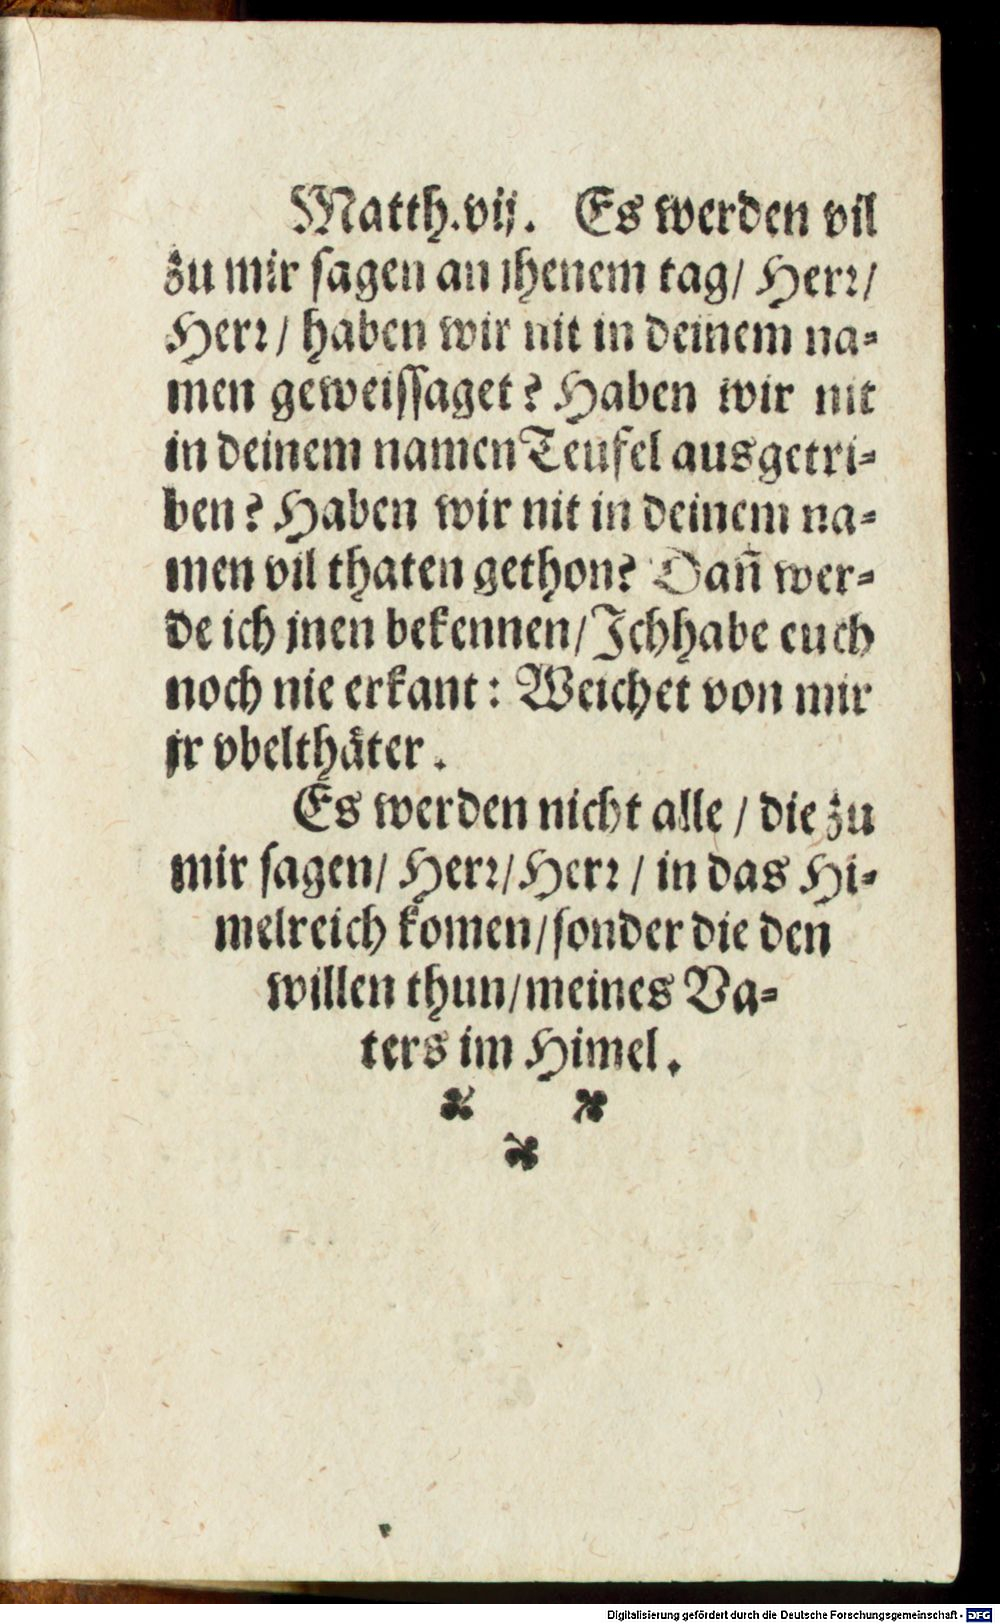 Matth.vij. Es werden vil
zu mir sagen an jhenem tag/ Herr/
Herr/ haben wir nit in deinem na-
men geweissaget? Haben wir nit
in deinem namen Teufel ausgetri-
ben? Haben wir nit in deinem na-
men vil thaten gethon? Dañ wer-
de ich jnen bekennen/ Ich habe euch
noch nie erkant: Weichet von mir
jr vbelthäter.
Es werden nicht alle / die zu
mir sagen/ Herr/ Herr / in das Hi-
melreich komen/ sonder die den
willen thun/ meines Va-
ters im Himel.
Digitalisierung gefördert durch die Deutsche Forschungsgemeinschaft - DFG